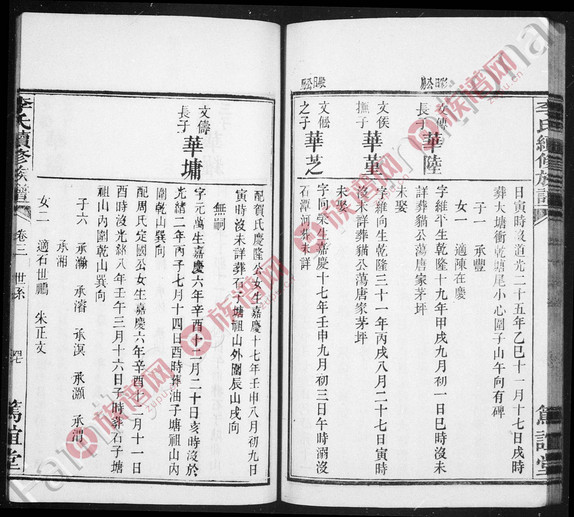 李氏續修族譜
日寅時歿道光二十五年乙巳十一月十七日戌時
葬大塘衝乾塘尾小心園子山午向有碑
子一 承豐
女一 適陳在慶
文
長子 華陸
字維平生乾隆十九年甲戌九月初一日巳時歿未
詳葬貓公蕩唐家茅坪
未娶
文俟
撫子 華堇
字維向生乾隆三十一年丙戌八月二十七日寅時
歿未詳葬貓公蕩唐家茅坪
未娶
文
之子 華芝
字同榮生嘉慶十七年壬申九月初三日午時溺沒
石潭河集未詳
篤誼堂
配賀氏慶隆公女生嘉慶十七年壬申八月初九日
寅時歿未詳葬石子塘祖山外園辰山戌向
無嗣
文儔
長子 華墉
字元萬生嘉慶六年辛酉十二月二十日亥時歿於
光緒二年丙子七月十四日酉時葬油子塘祖山內
園乾山巽向
配周氏定國公女生嘉慶六年辛酉十二月十一日
酉時歿光緒八年壬午三月十六日子時葬石子塘
祖山內園乾山巽向
子六 承瀚 承濬 承溟 承灝 承渭
承湘
女二 適石世鵬 朱正文
李氏續修族譜
卷三 世系
篤誼堂
族谱网
zupu.cn